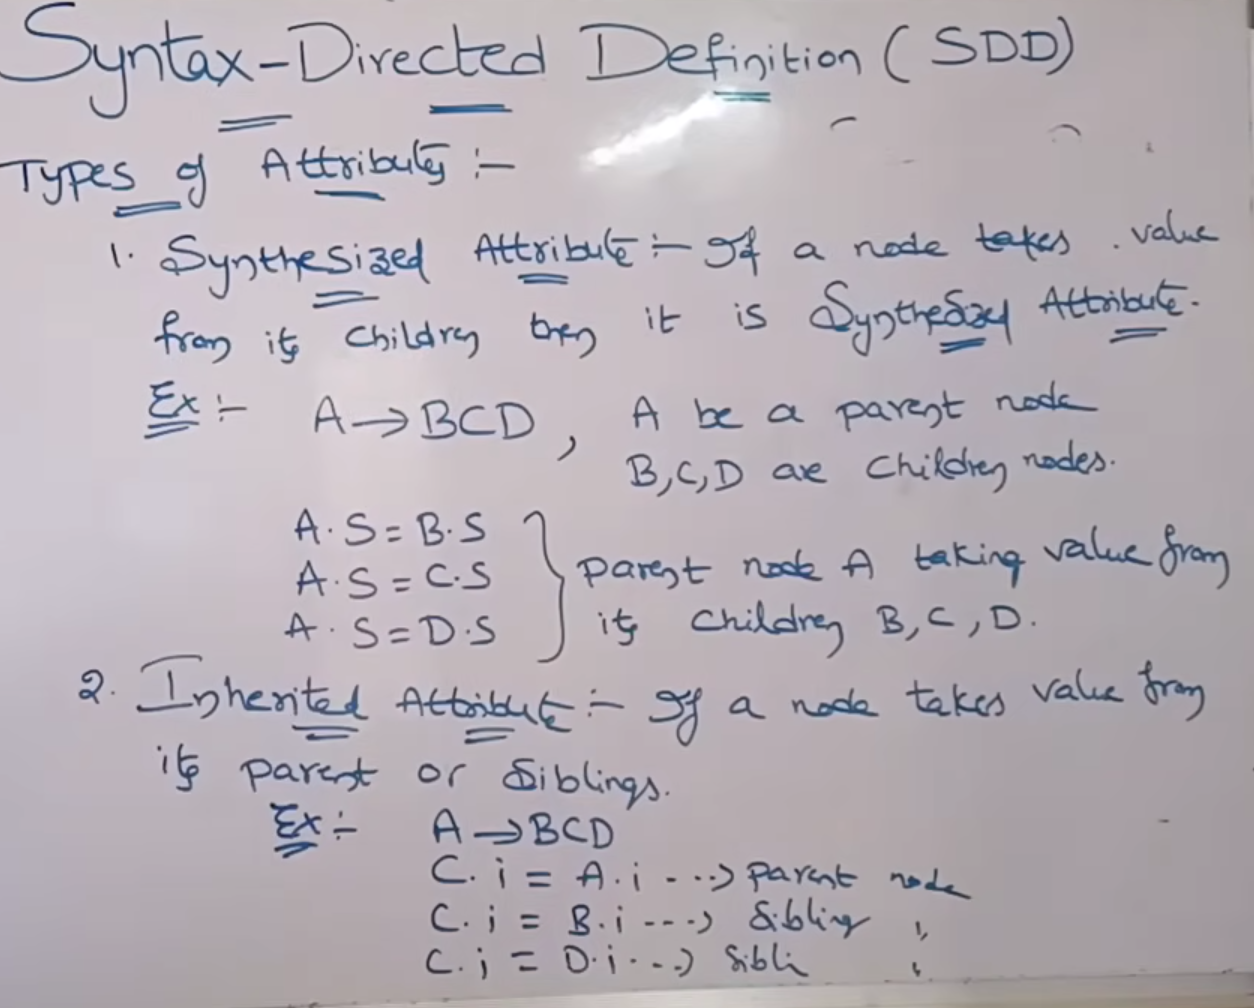 Syntax-Directed Definition (SDD)
Types of Attributes :-
1. Synthesized Attribute :- If a node takes value
from its children then it is Synthesized Attribute.
Ex :- A → BCD , A be a parent node
B, C, D are Children nodes.
A.S = B.S
A.S = C.S
A.S = D.S
parent node A taking value from
its children B, C, D.
2. Inherited Attribute :- If a node takes value from
its parent or Siblings.
Ex :- A → BCD
C.i = A.i ---> parent node
C.i = B.i ---> Sibling "
C.i = D.i ---> Sibli "